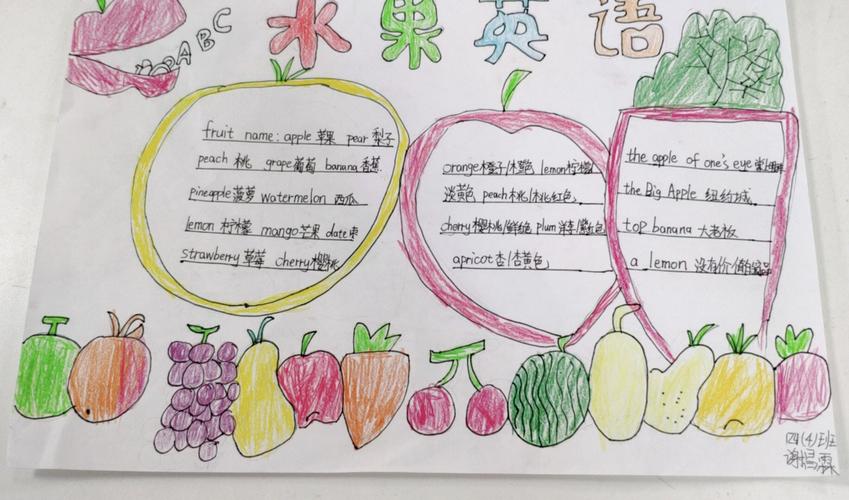 ABC
水果英语
fruit name: apple 苹果 pear 梨子
peach 桃 grape 葡萄 banana 香蕉
pineapple 菠萝 watermelon 西瓜
lemon 柠檬 mango 芒果 date 枣
strawberry 草莓 cherry 樱桃
orange 橙子/木橙色 lemon 柠檬/
淡黄色 peach 桃/桃红色
cherry 樱桃/鲜红色 plum 洋李/紫红色
apricot 杏/杏黄色
the apple of one's eye 掌上明珠
the Big Apple 纽约城
top banana 大老板
a lemon 没有价值的
四(4)班